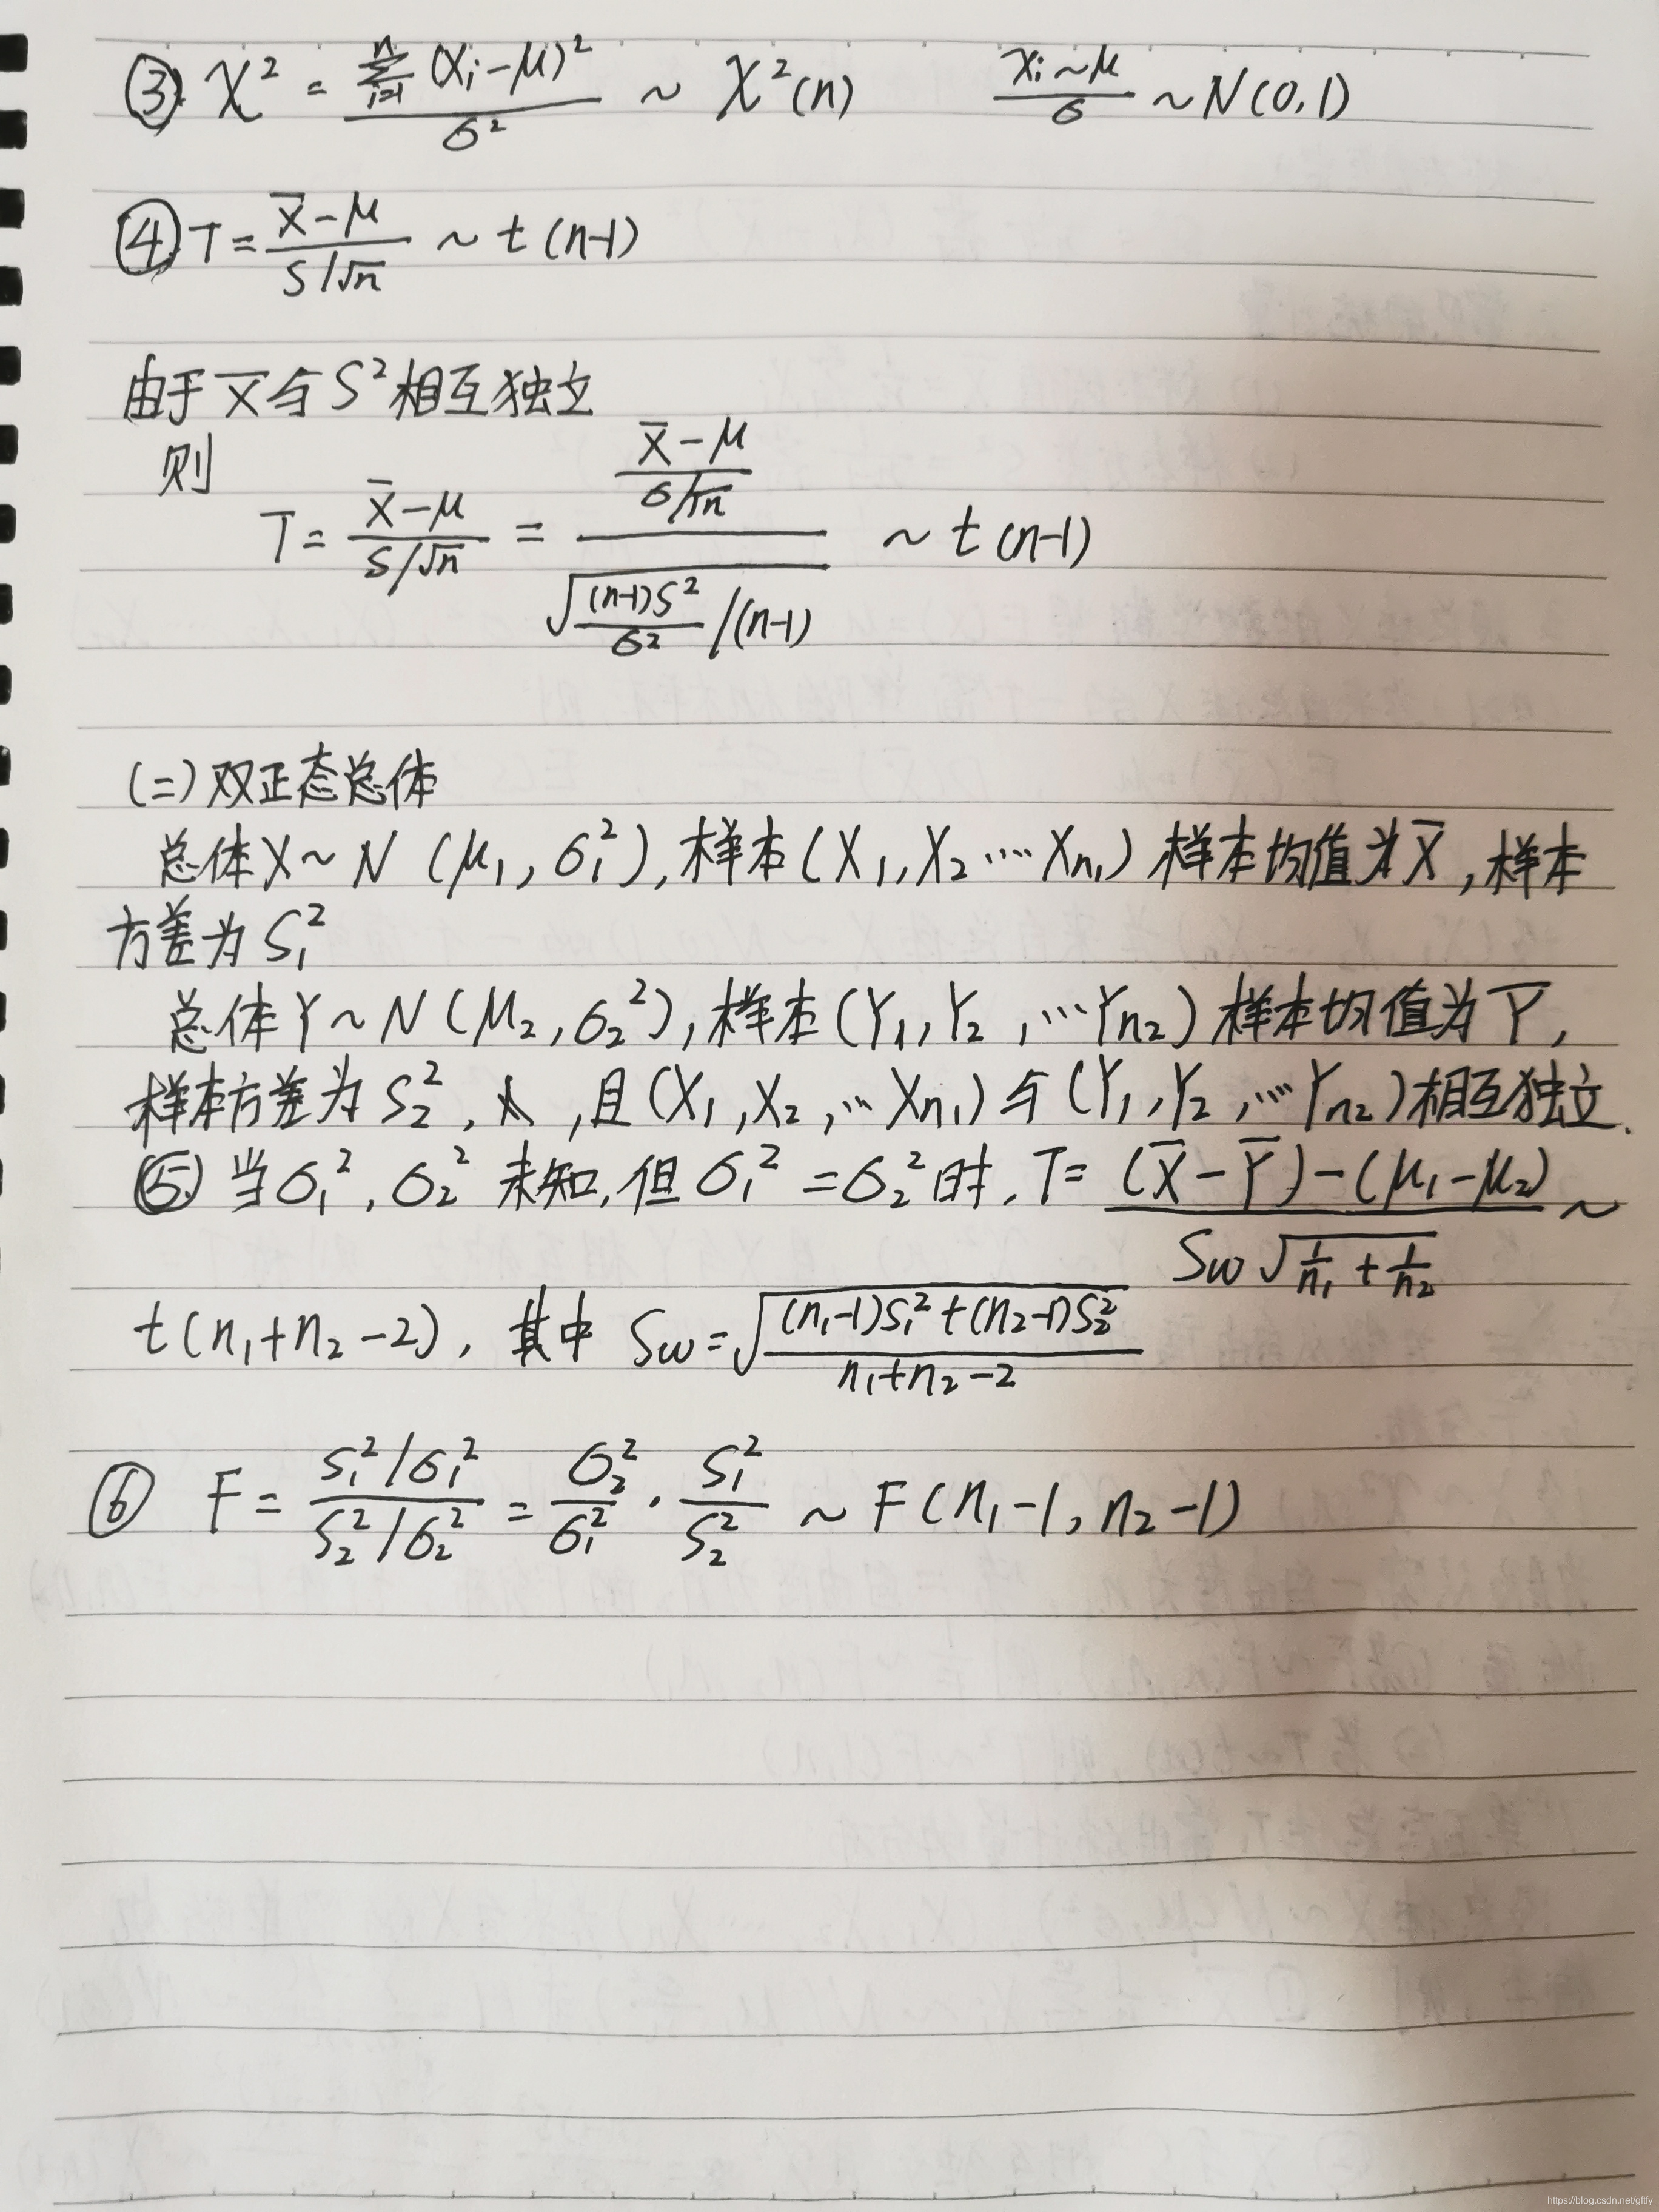 ③ χ² = \frac{\sum_{i=1}^{n}(X_i-μ)²}{σ²} ~ χ²(n)  \frac{X_i~μ}{σ} ~ N(0,1)
④ T = \frac{\bar{X}-μ}{S/\sqrt{n}} ~ t(n-1)
由于 \bar{X} 与 S² 相互独立
则
T = \frac{\bar{X}-μ}{S/\sqrt{n}} = \frac{\frac{\bar{X}-μ}{σ/\sqrt{n}}}{\sqrt{\frac{(n-1)S²}{σ²}/(n-1)}} ~ t(n-1)
(二) 双正态总体
总体X~N(μ₁, σ₁²), 样本(X₁, X₂ ···· X_{n₁}) 样本均值为\bar{X}, 样本
方差为 S₁²
总体Y~N(μ₂, σ₂²), 样本(Y₁, Y₂, ···Y_{n₂}) 样本均值为\bar{Y},
样本方差为 S₂², , 且(X₁, X₂, ··· X_{n₁})与(Y₁, Y₂, ···Y_{n₂})相互独立.
⑤ 当σ₁², σ₂² 未知, 但σ₁² = σ₂²时, T = \frac{(\bar{X}-\bar{Y})-(μ₁-μ₂)}{S_w\sqrt{\frac{1}{n₁}+\frac{1}{n₂}}} ~
t(n₁+n₂-2), 其中 S_w = \sqrt{\frac{(n₁-1)S₁²+(n₂-1)S₂²}{n₁+n₂-2}}
⑥ F = \frac{S₁²/σ₁²}{S₂²/σ₂²} = \frac{σ₂²}{σ₁²} · \frac{S₁²}{S₂²} ~ F(n₁-1, n₂-1)
https://blog.csdn.net/gftfy